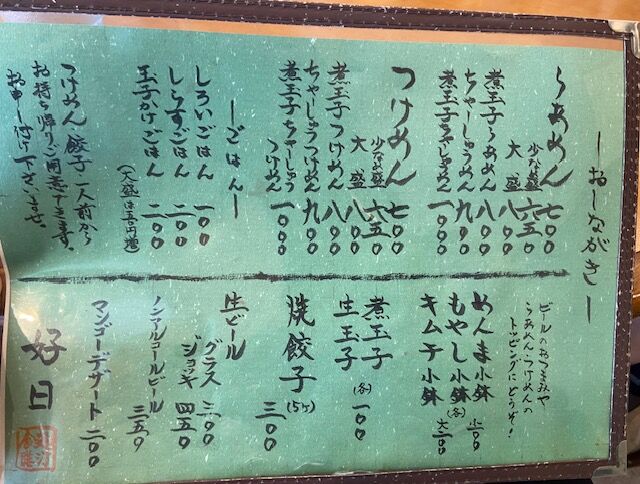 ーおーしながきー
らあめん 七〇〇
少なめ盛 六五〇
大盛 八〇〇
煮玉子らあめん 八〇〇
ちゃーしゅうめん 九〇〇
煮玉子ちゃーしゅうめん 一〇〇〇
つけめん 七〇〇
少なめ盛 六五〇
大盛 八〇〇
煮玉子つけめん 八〇〇
ちゃーしゅうつけめん 九〇〇
煮玉子ちゃーしゅう
つけめん 一〇〇〇
ーごはんー
しろいごはん 一〇〇
しらすごはん 二〇〇
玉子かけごはん 二〇〇
(大盛は五〇円増)
つけめん 餃子 一人前から
お持ち帰りご用意できます。
お申し付け下さいませ。
ビールのおつまみや
らあめん・つけめんの
トッピングにどうぞ!
めんま小鉢
もやし小鉢
キムチ小鉢
(各) 小一〇〇
大二〇〇
煮玉子
生玉子
(各) 一〇〇
焼餃子(5ケ) 三〇〇
生ビール
グラス 三〇〇
ジョッキ 四五〇
ノンアルコールビール 三五〇
マンゴーデザート 二〇〇
好日